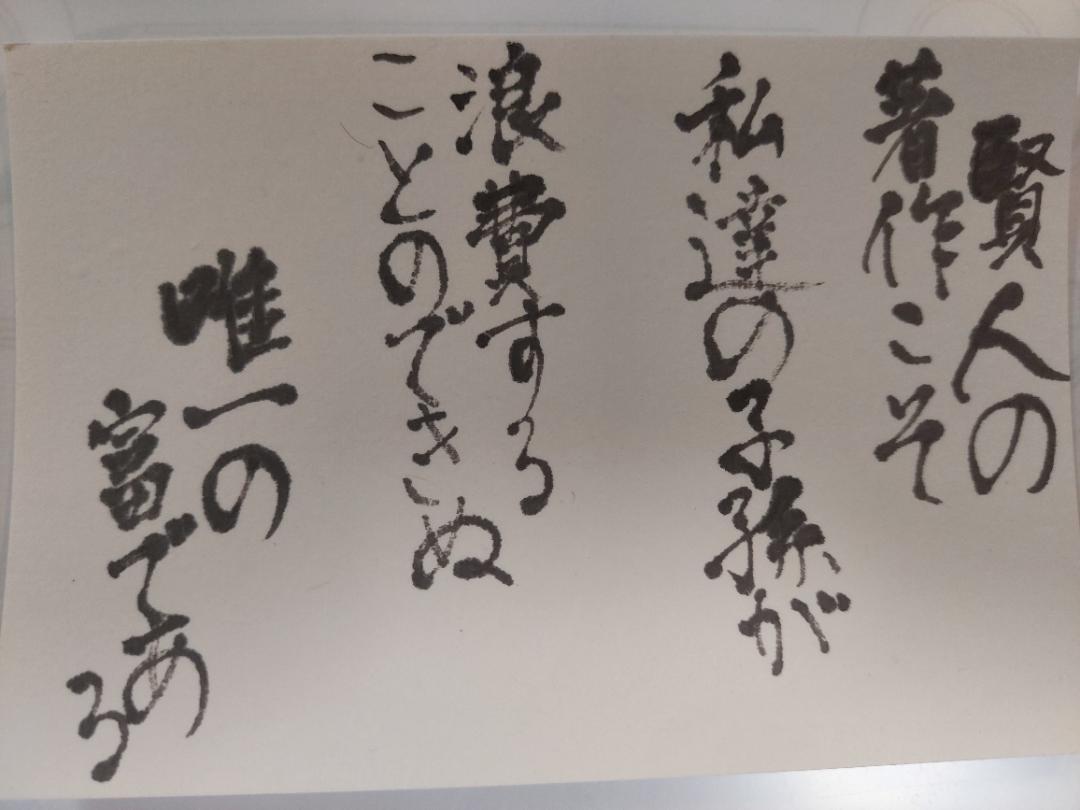 賢人の
著作こそ
私達の子孫が
浪費する
ことのできぬ
唯一の
富であ
る